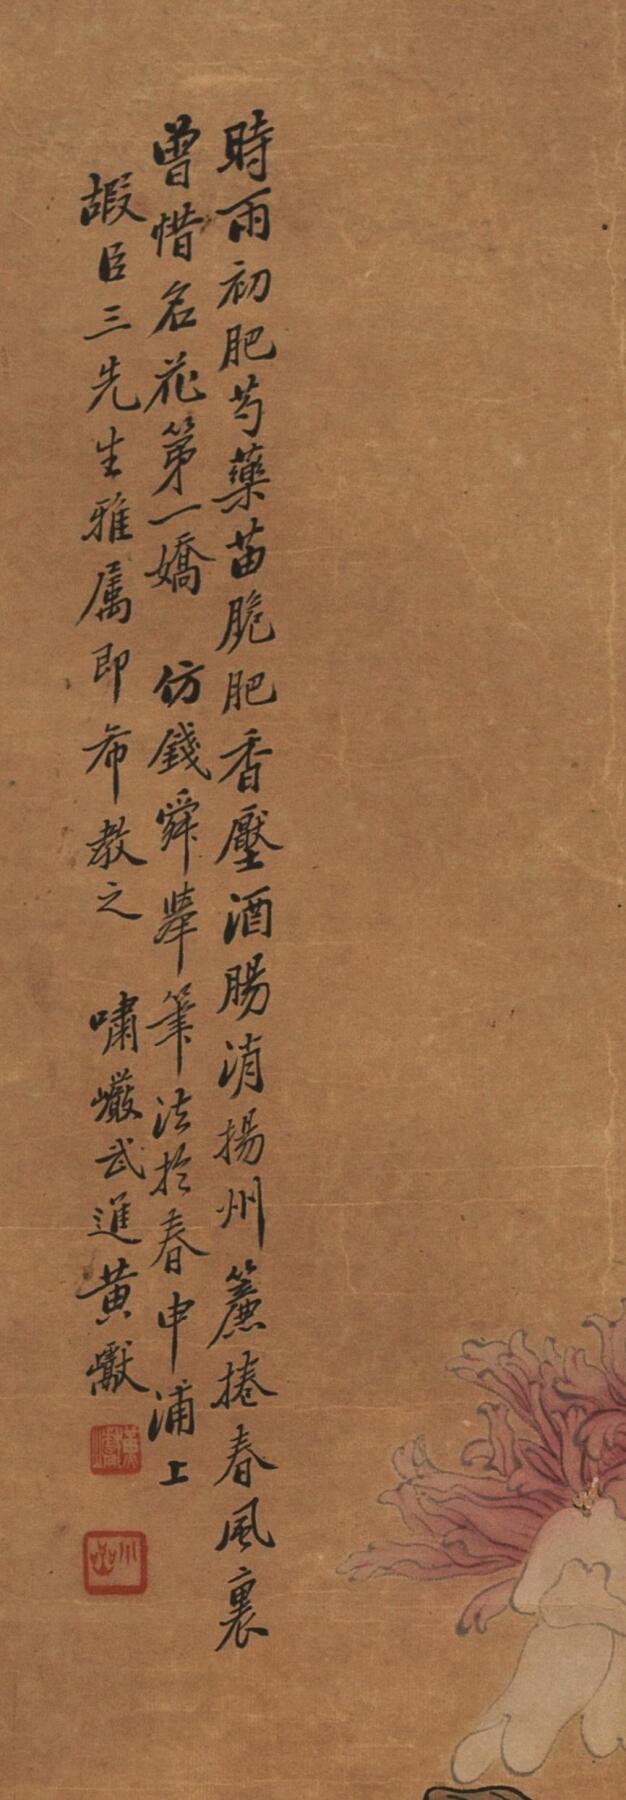 時雨初肥芍藥苗脆肥香壓酒腸消揚州簾捲春風裏
曾惜名花第一嬌 仿錢舜舉筆法於春申浦上
嘏臣三先生雅属即希教之 嘯巖武進黄巘